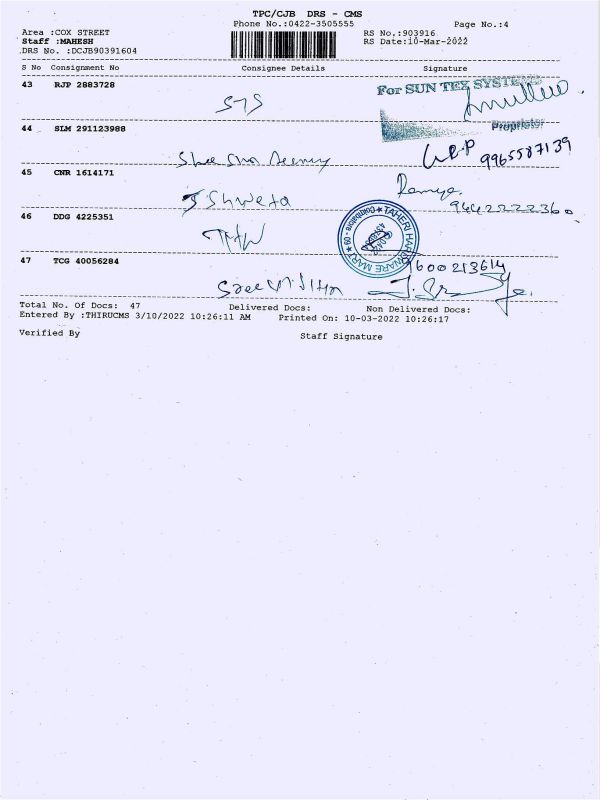 TPC/CJB DRS - CMS
Phone No.:0422-3505555 Page No.:4
Area :COX STREET RS No.:903916
Staff :MAHESH RS Date:10-Mar-2022
DRS No. :DCJB90391604
S No Consignment No Consignee Details Signature
43 RJP 2883728
For SUN TEX SYSTEMS
STS
Proprietor
44 SLM 291123988
9965587139
Shree
45 CNR 1614171
Ramya.
J Shweta 9442232360
46 DDG 4225351
THW
TAHERI HARDWARE MART
47 TCG 40056284
9600213614
Total No. Of Docs: 47 Delivered Docs: Non Delivered Docs:
Entered By :THIRUCMS 3/10/2022 10:26:11 AM Printed On: 10-03-2022 10:26:17
Verified By Staff Signature